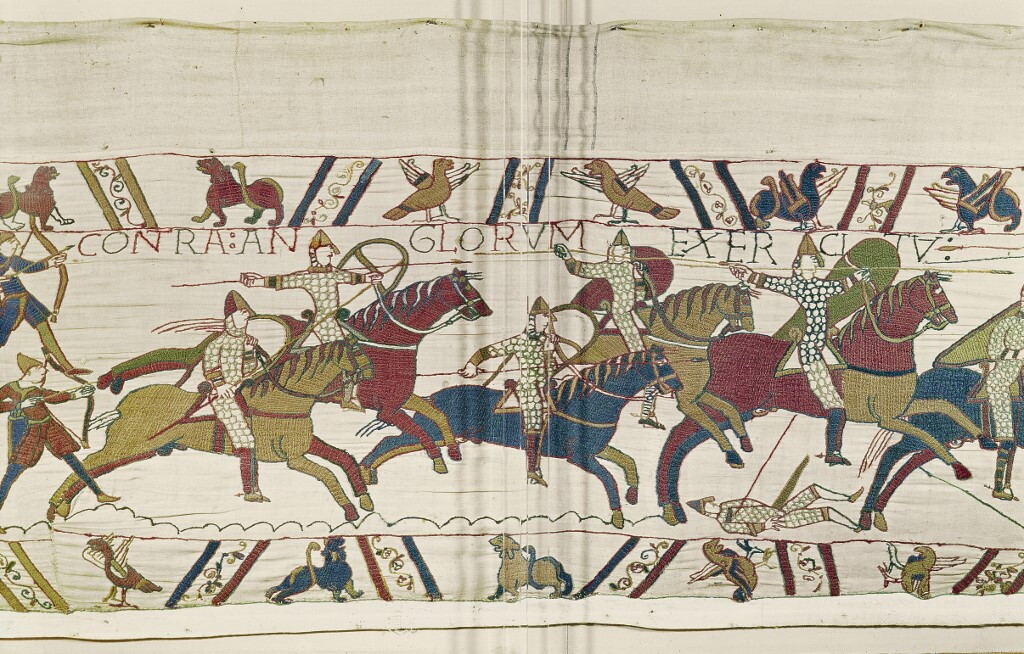 CONTRA: AN GLORVM EXER CITV: